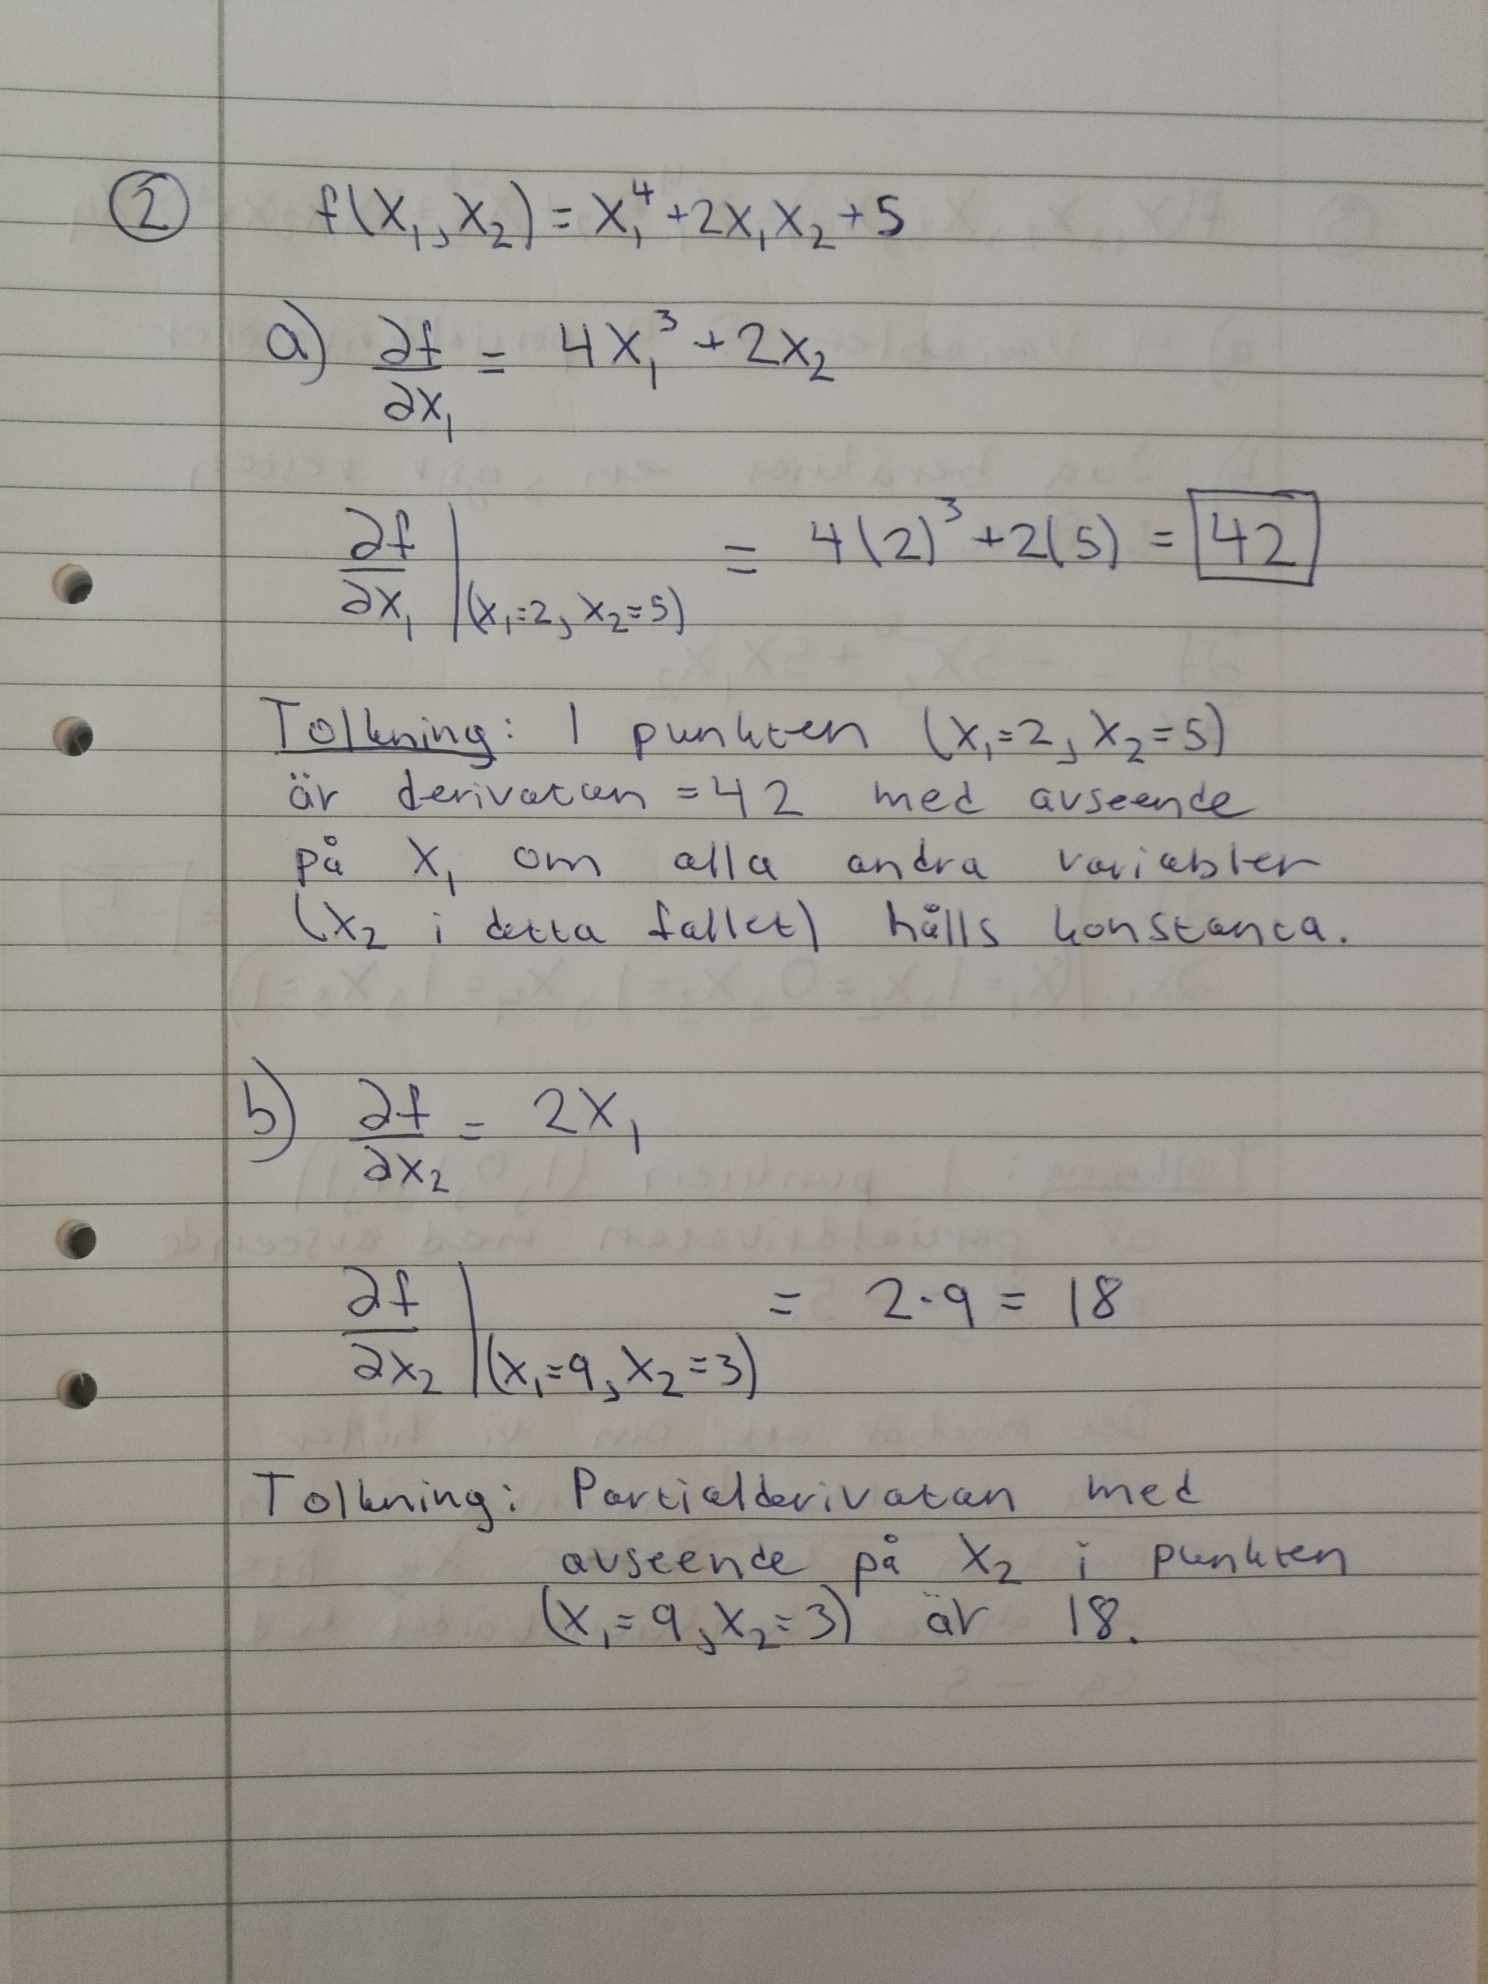 ② f(x₁, x₂) = x₁⁴ + 2x₁x₂ + 5
a) ∂f/∂x₁ = 4x₁³ + 2x₂
∂f/∂x₁ |(x₁=2, x₂=5) = 4(2)³ + 2(5) = 42
Tolkning: I punkten (x₁=2, x₂=5)
är derivatan = 42 med avseende
på x₁ om alla andra variabler
(x₂ i detta fallet) hålls konstanta.
b) ∂f/∂x₂ = 2x₁
∂f/∂x₂ |(x₁=9, x₂=3) = 2·9 = 18
Tolkning: Partialderivatan med
avseende på x₂ i punkten
(x₁=9, x₂=3) är 18.